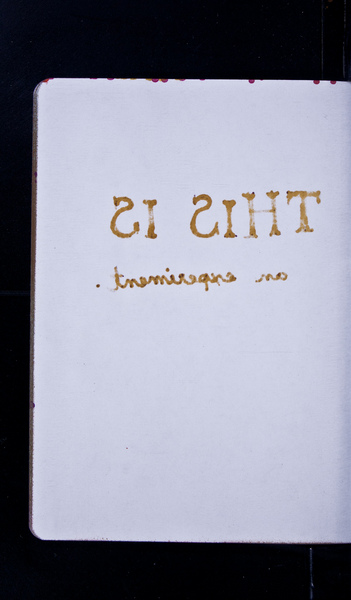 THIS IS
an experiment.